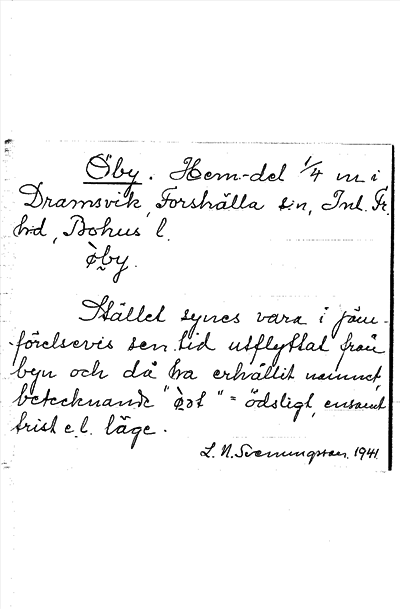 Öby. Hem.-del 1/4 m i
Dramsvik, Forshälla s:n, Inl. Fr.
h-d, Bohus l.
öby.
Stället synes vara i jäm-
förelsevis sen tid utflyttat från
byn och då ha erhållit namnet,
betecknande "öde" = ödsligt, ensamt
trist e.l. läge.
L. N. Svenungsson. 1941.